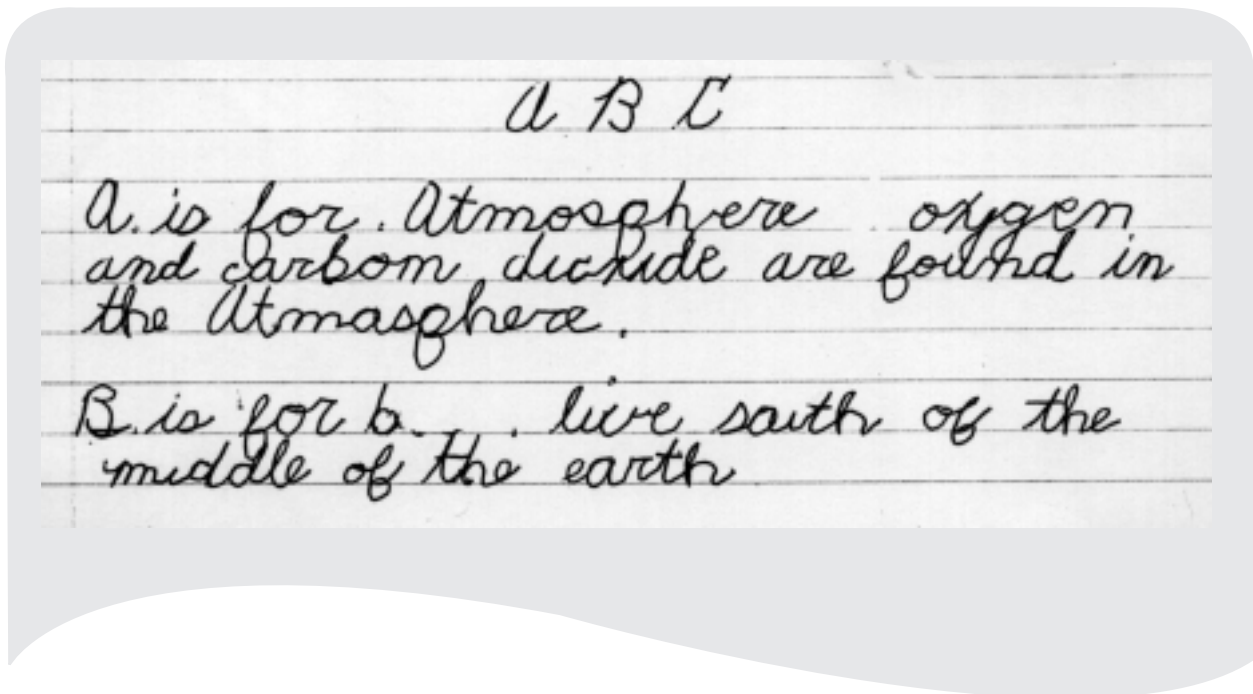 A B C
A. is for. Atmosphere oxygen
and carbom dioxide are found in
the Atmasphere.
B. is for b. . live south of the
middle of the earth